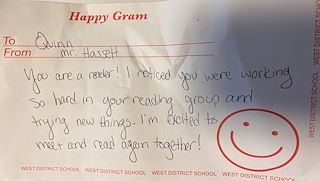 Happy Gram
To Quinn
From Mr. Hassett
You are a reader! I noticed you were working
so hard in your reading group and
trying new things. I'm excited to
meet and read again together!
WEST DISTRICT SCHOOL WEST DISTRICT SCHOOL WEST DISTRICT SCHOOL WEST DISTRICT SCHOOL
WEST DISTRICT SCHOOL WEST DISTRICT SCHOOL